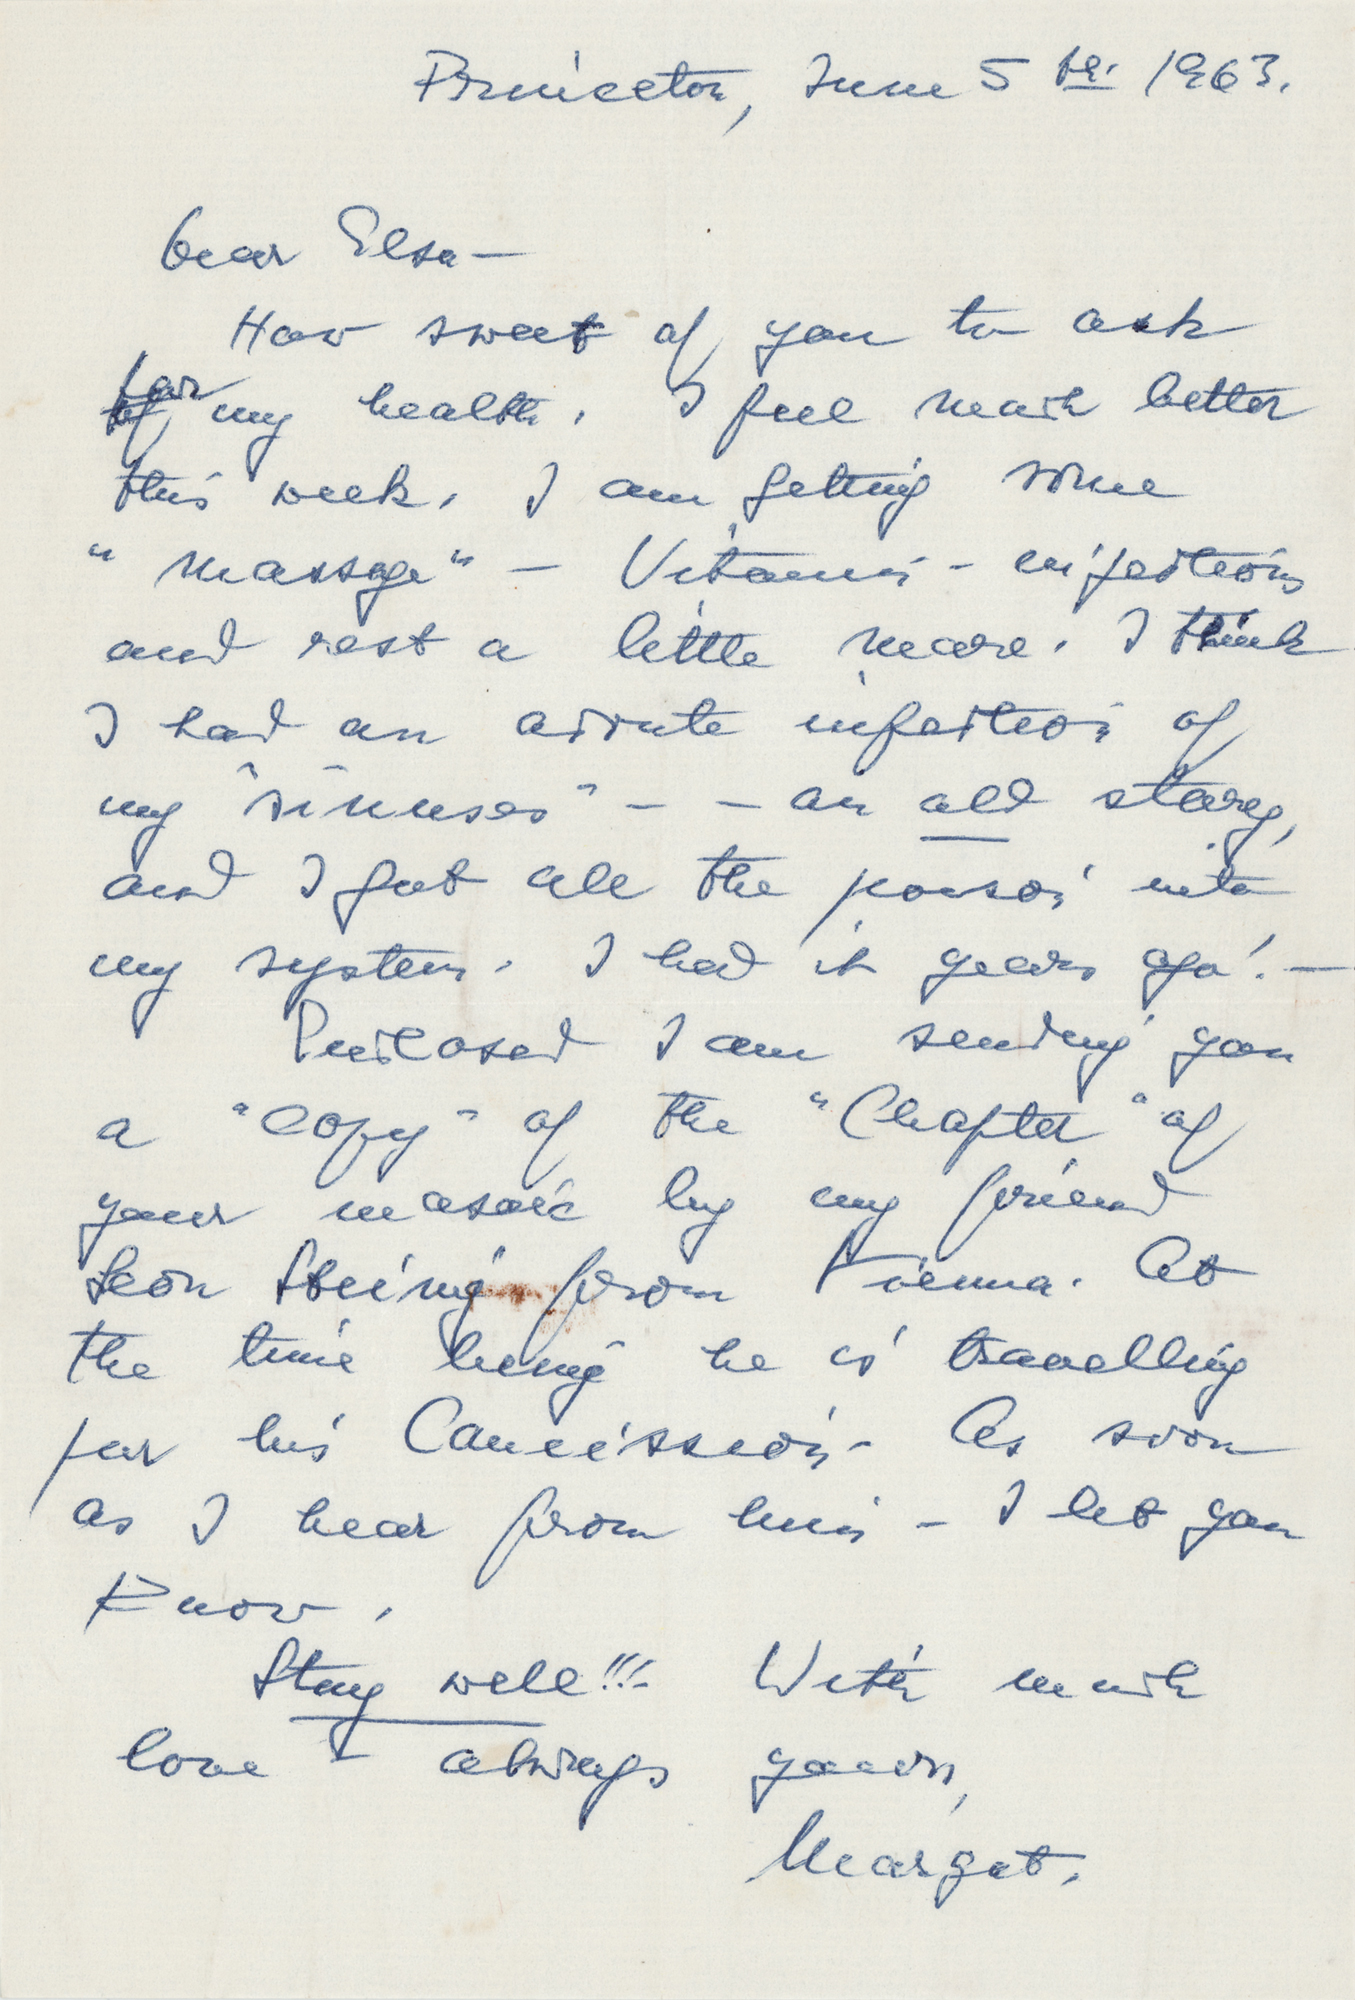 Princeton, June 5th. 1963.
Dear Elsa —
How sweet of you to ask
for my health. I feel much better
this week. I am getting some
"massage" — Vitamin - injections
and rest a little more. I think
I had an accute infection of
my "sinuses" - - an old story,
and I get all the poison into
my system. I had it years ago! —
Enclosed I am sending you
a "copy" of the "Chapter" of
your mosaic by my friend
Leon from Vienna. At
the time being he is travelling
for his Comission. As soon
as I hear from him - I let you
know.
Stay well!!! With much
love - always yours,
Margot.